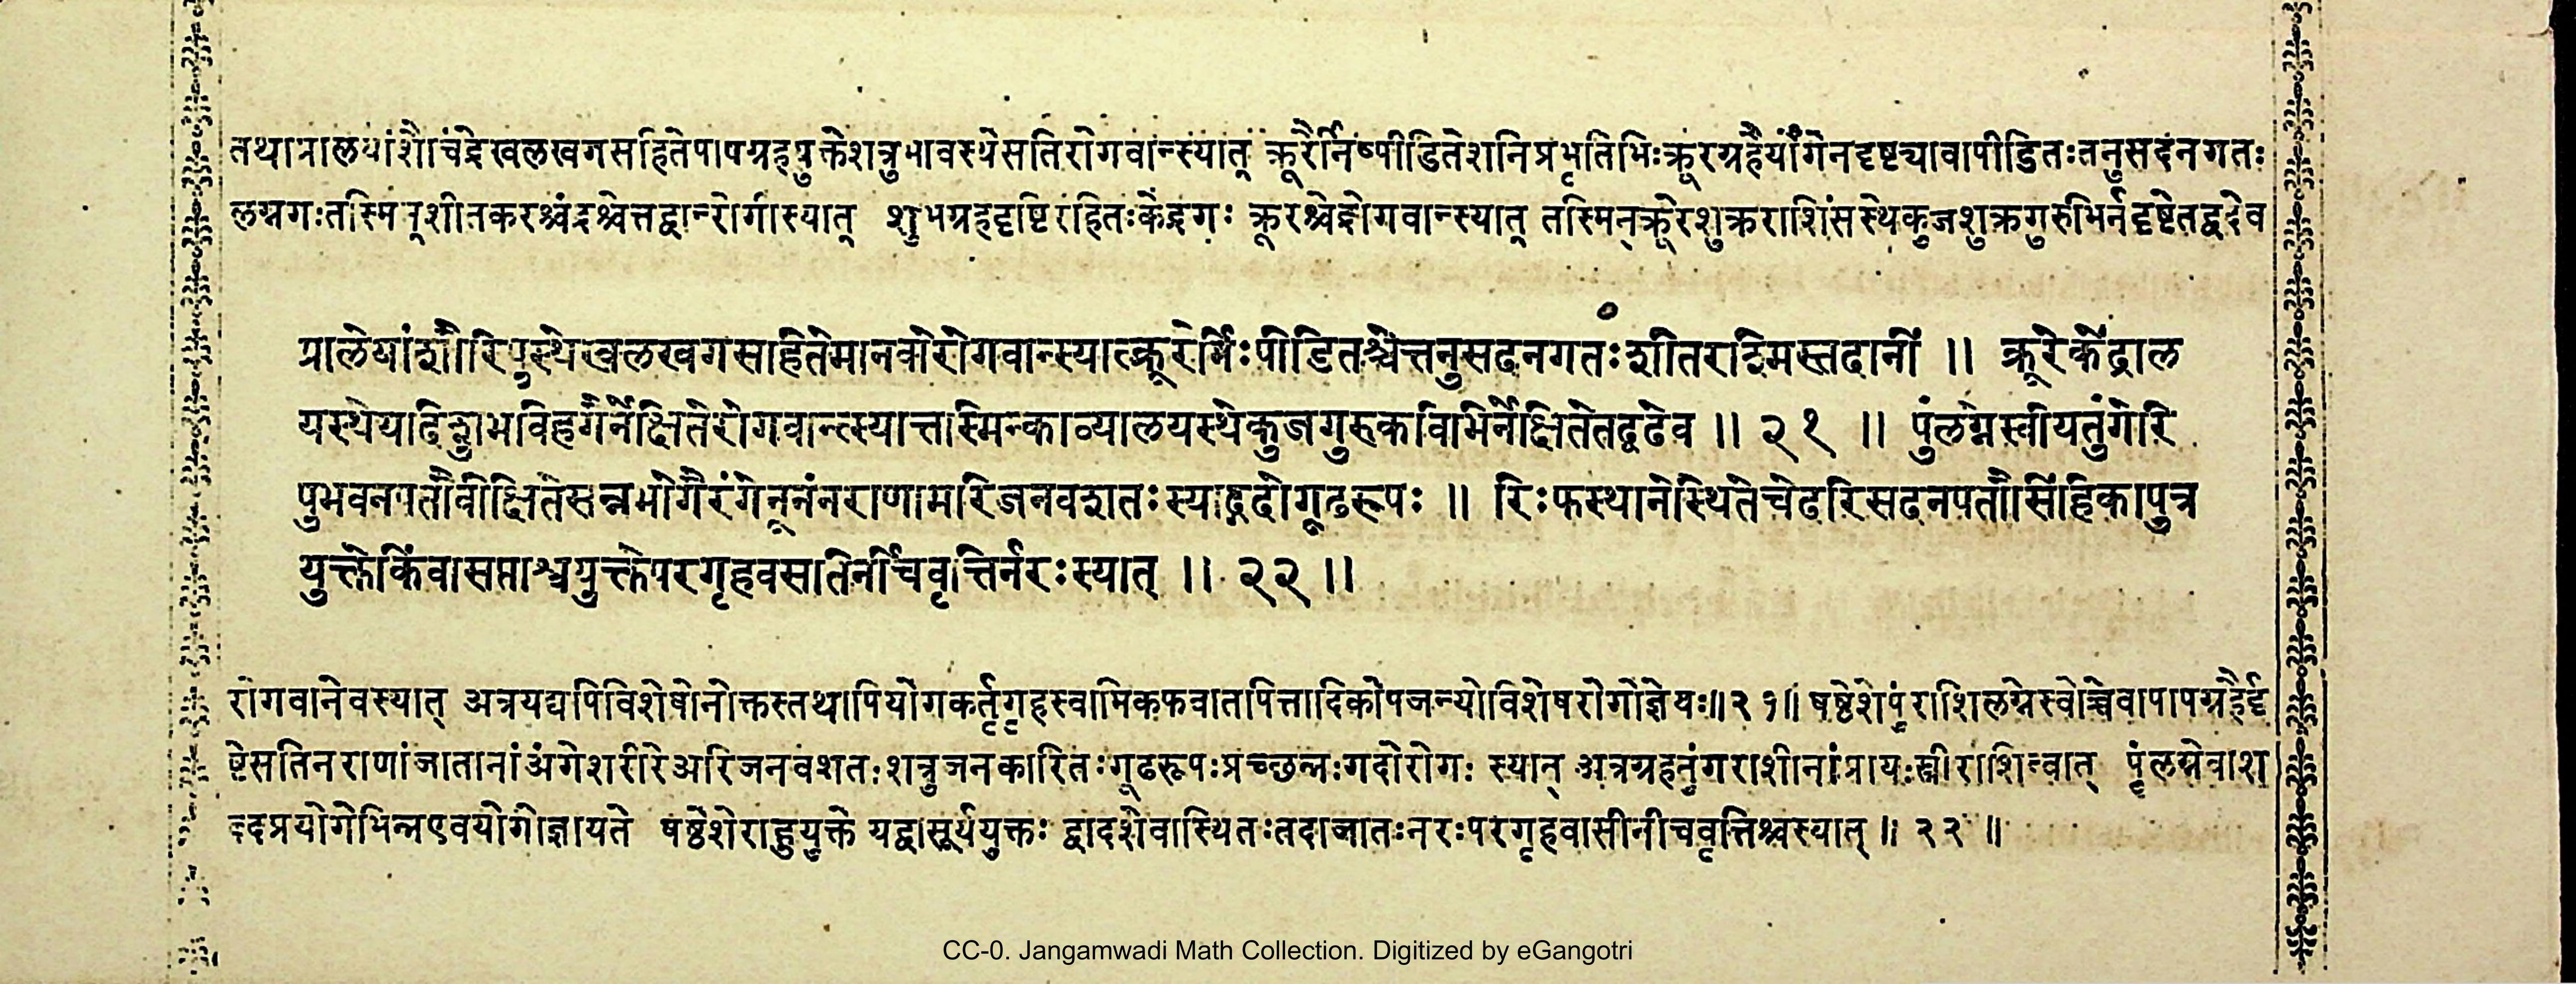 तथाप्रालेयांशौचंद्रेखलखगसहितेपापग्रहयुक्तेशत्रुभावस्थेसतिरोगवान्स्यात् क्रूरैर्निष्पीडितेशनिप्रभृतिभिःक्रूरग्रहैर्योगेनदृष्ट्यावापीडितःतनुसदनगतः
लग्नगःतस्मिन्शीतकरश्चंद्रश्चेत्तद्वान्रोगीस्यात् शुभग्रहदृष्टिरहितःकेंद्रगः क्रूरश्चेद्रोगवान्स्यात् तस्मिन्क्रूरेशुक्रराशिसंस्थेकुजशुक्रगुरुभिर्नदृष्टेतद्वदेव
प्रालेयांशौरिपुस्थेखलखगसहितेमानवोरोगवान्स्यात्क्रूरैर्भिःपीडितश्चेत्तनुसदनगतःशीतरश्मिस्तदानीं ॥ क्रूरेकेंद्राल
यस्थेयदिशुभविहगैर्नेक्षितेरोगवान्त्स्यात्तस्मिन्काव्यालयस्थेकुजगुरुकविभिर्नेक्षितेतद्वदेव ॥ २१ ॥ पुंलग्नेस्वीयतुंगेरि
पुभवनपतौवीक्षितेसन्नभोगैरंगेनूनंनराणामरिजनवशतःस्याद्गदोगूढरूपः ॥ रिःफस्थानेस्थितेचेदरिसदनपतौसिंहिकापुत्र
युक्तेकिंवासप्ताश्वयुक्तेपरगृहवसतिर्नीचवृत्तिर्नरःस्यात् ॥ २२ ॥
रोगवानेवस्यात् अत्रयद्यपिविशेषोनोक्तस्तथापियोगकर्तृगृहस्वामिकफवातपित्तादिकोपजन्योविशेषरोगोज्ञेयः॥२१॥ षष्ठेशेपुंराशिलग्नेस्वोच्चेवापापग्रहैर्दृ
ष्टेसतिनराणांजातानांअंगेशरीरेअरिजनवशतःशत्रुजनकारितःगूढरूपःप्रच्छन्नःगदोरोगः स्यात् अत्रग्रहतुंगराशीनांप्रायःस्त्रीराशित्वात् पुंलग्नेवाश
ब्दप्रयोगेभिन्नएवयोगोज्ञायते षष्ठेशेराहुयुक्ते यद्वासूर्ययुक्तः द्वादशेवास्थितःतदाजातःनरःपरगृहवासीनीचवृत्तिश्चस्यात् ॥ २२ ॥
CC-0. Jangamwadi Math Collection. Digitized by eGangotri